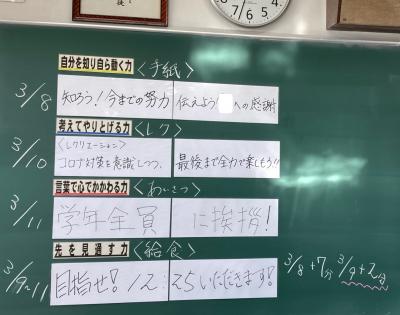 自分を知り自ら動く力 〈手紙〉
3/8 知ろう!今までの努力 伝えよう への感謝
考えてやりとげる力 〈レク〉
〈レクリエーション〉
3/10 コロナ対策を意識しつつ、 最後まで全力で楽しもう!!
言葉で心でかかわる力 〈あいさつ〉
3/11 学年全員 に挨拶!
先を見通す力 〈給食〉
3/9~11 目指せ!12:25いただきます!
3/8+7分 3/9+2分